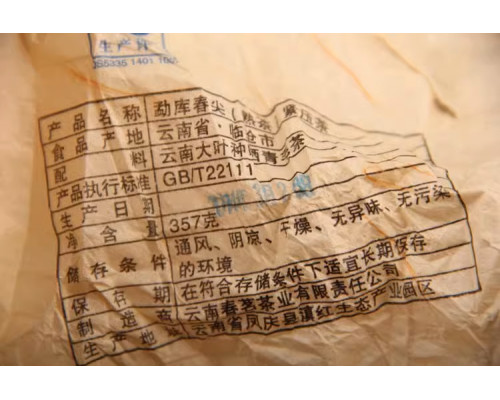 生产许
产品名称 勐库春尖(熟茶)紧压茶
食品产地 云南省·临仓市
配料 云南大叶种晒青毛茶
产品执行标准 GB/T22111
生产日期
净含量 357克
储存条件 通风、阴凉、干燥、无异味、无污染
的环境
保存期 在符合存储条件下适宜长期保存
制造商 云南春茗茶业有限责任公司
生产地 云南省凤庆县滇红生态产业园区